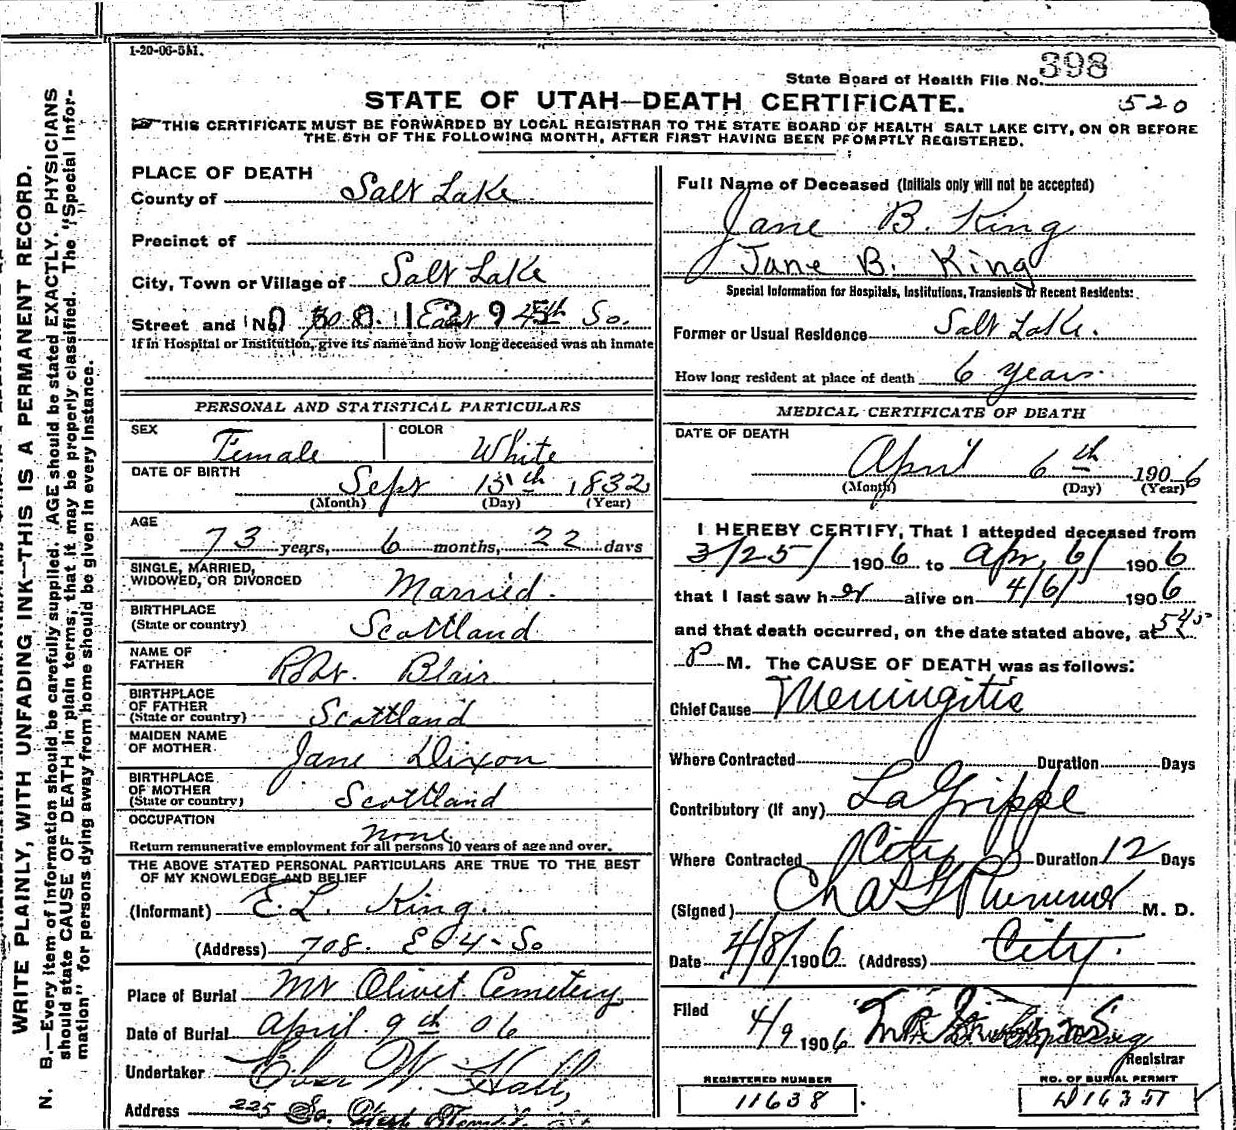 1-20-06-5M.
State Board of Health File No. 398
STATE OF UTAH—DEATH CERTIFICATE.
520
THIS CERTIFICATE MUST BE FORWARDED BY LOCAL REGISTRAR TO THE STATE BOARD OF HEALTH SALT LAKE CITY, ON OR BEFORE
THE 5TH OF THE FOLLOWING MONTH, AFTER FIRST HAVING BEEN PROMPTLY REGISTERED.
WRITE PLAINLY, WITH UNFADING INK—THIS IS A PERMANENT RECORD.
N. B.—Every item of information should be carefully supplied. AGE should be stated EXACTLY. PHYSICIANS
should state CAUSE OF DEATH in plain terms, that it may be properly classified. The "Special Infor-
mation" for persons dying away from home should be given in every instance.
PLACE OF DEATH
County of Salt Lake
Precinct of
City, Town or Village of Salt Lake
Street and No. 708 East 4th So.
If in Hospital or Institution, give its name and how long deceased was an inmate
PERSONAL AND STATISTICAL PARTICULARS
SEX Female COLOR White
DATE OF BIRTH Sept 15th 1832
(Month) (Day) (Year)
AGE
73 years, 6 months, 22 days
SINGLE, MARRIED,
WIDOWED, OR DIVORCED Married.
BIRTHPLACE
(State or country) Scottland
NAME OF
FATHER Robt. Blair
BIRTHPLACE
OF FATHER
(State or country) Scottland
MAIDEN NAME
OF MOTHER Jane Dixon
BIRTHPLACE
OF MOTHER
(State or country) Scottland
OCCUPATION none
Return remunerative employment for all persons 10 years of age and over.
THE ABOVE STATED PERSONAL PARTICULARS ARE TRUE TO THE BEST
OF MY KNOWLEDGE AND BELIEF
(Informant) E. L. King.
(Address) 708. E 4 - So
Place of Burial Mt Olivet Cemetery
Date of Burial April. 9th 06
Undertaker Eber W. Hall,
Address 225 So. West Temple
Full Name of Deceased (Initials only will not be accepted)
Jane B. King
Jane B. King
Special Information for Hospitals, Institutions, Transients or Recent Residents:
Former or Usual Residence Salt Lake.
How long resident at place of death 6 years.
MEDICAL CERTIFICATE OF DEATH
DATE OF DEATH
April 6th 1906
(Month) (Day) (Year)
I HEREBY CERTIFY, That I attended deceased from
3/25/ 1906 to Apr, 6/ 1906
that I last saw her alive on 4/6/ 1906
and that death occurred, on the date stated above, at 5 45
P M. The CAUSE OF DEATH was as follows:
Chief Cause Meningitis
Where Contracted Duration Days
Contributory (If any) LaGrippe
Where Contracted City Duration 12 Days
(Signed) Chas G Plummer M. D.
Date 4/8/ 1906 (Address) City.
Filed 4/9 1906
Registrar
REGISTERED NUMBER
11638
NO. OF BURIAL PERMIT